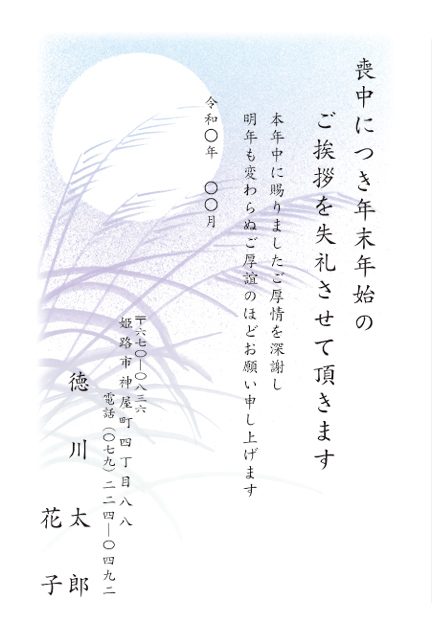 喪中につき年末年始の
ご挨拶を失礼させて頂きます
本年中に賜りましたご厚情を深謝し
明年も変わらぬご厚誼のほどお願い申し上げます
令和〇年　〇〇月
〒六七〇―〇八三六
姫路市神屋町四丁目八八
電話（〇七九）二二四―〇四九二
徳川　太郎
花子